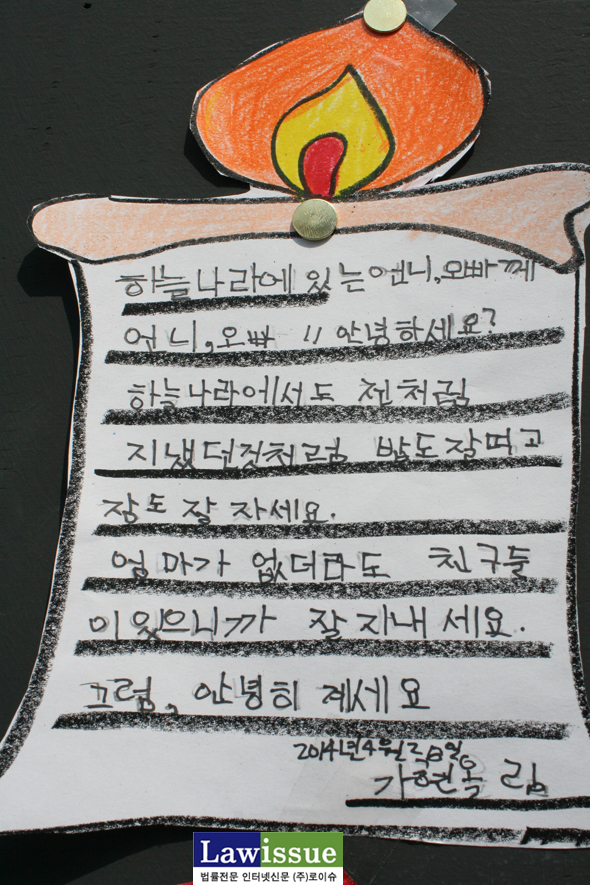 하늘나라에 있는 언니,오빠께
언니,오빠 !! 안녕하세요?
하늘나라에서도 전처럼
지냈던것처럼 밥도잘먹고
잠도 잘 자세요.
엄마가 없더라도 친구들
이있으니까 잘 지내세요.
끄럼, 안녕히 계세요
2014년4월
림
Lawissue
법률전문 인터넷신문 (주)로이슈